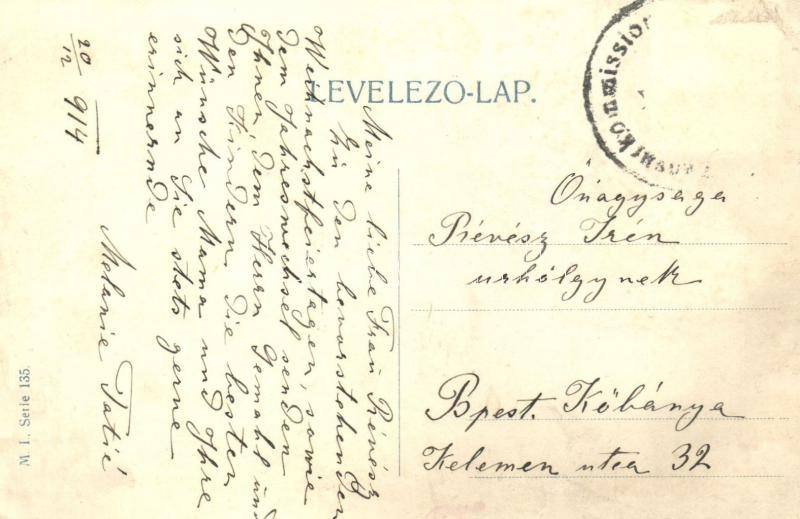 LEVELEZŐ-LAP.
Meine liebe Frau Révész
Zu den bevorstehenden
Weihnachtsfeiertagen, sowie
dem Jahreswechsel senden
Ihnen, dem Herrn Gemahl und
den Kindern die besten
Wünsche Mama und Ihre
sich an Sie stets gerne
erinnernde
Melanie Tatić
20/12 914
kommission
Őnagysága
Révész Irén
urhölgynek
Bpest. Kőbánya
Kelemen utca 32
M. I. Serie 135.